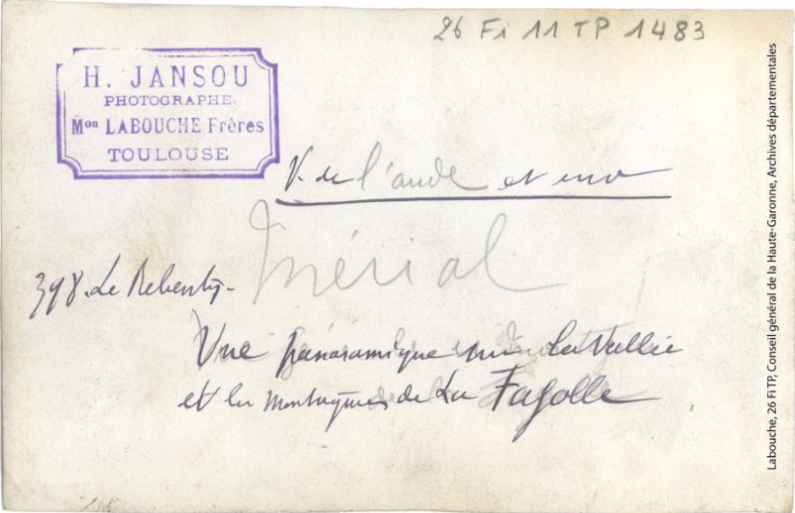 26 Fi 11 TP 1483
H. JANSOU
PHOTOGRAPHE
Mon LABOUCHE Frères
TOULOUSE
V. de l'aude et env
Mérial
398. Le Rebenty-
Vue panoramique sur La Vallée
et les montagnes de La Fajolle
Labouche, 26 FITP, Conseil général de la Haute-Garonne, Archives départementales